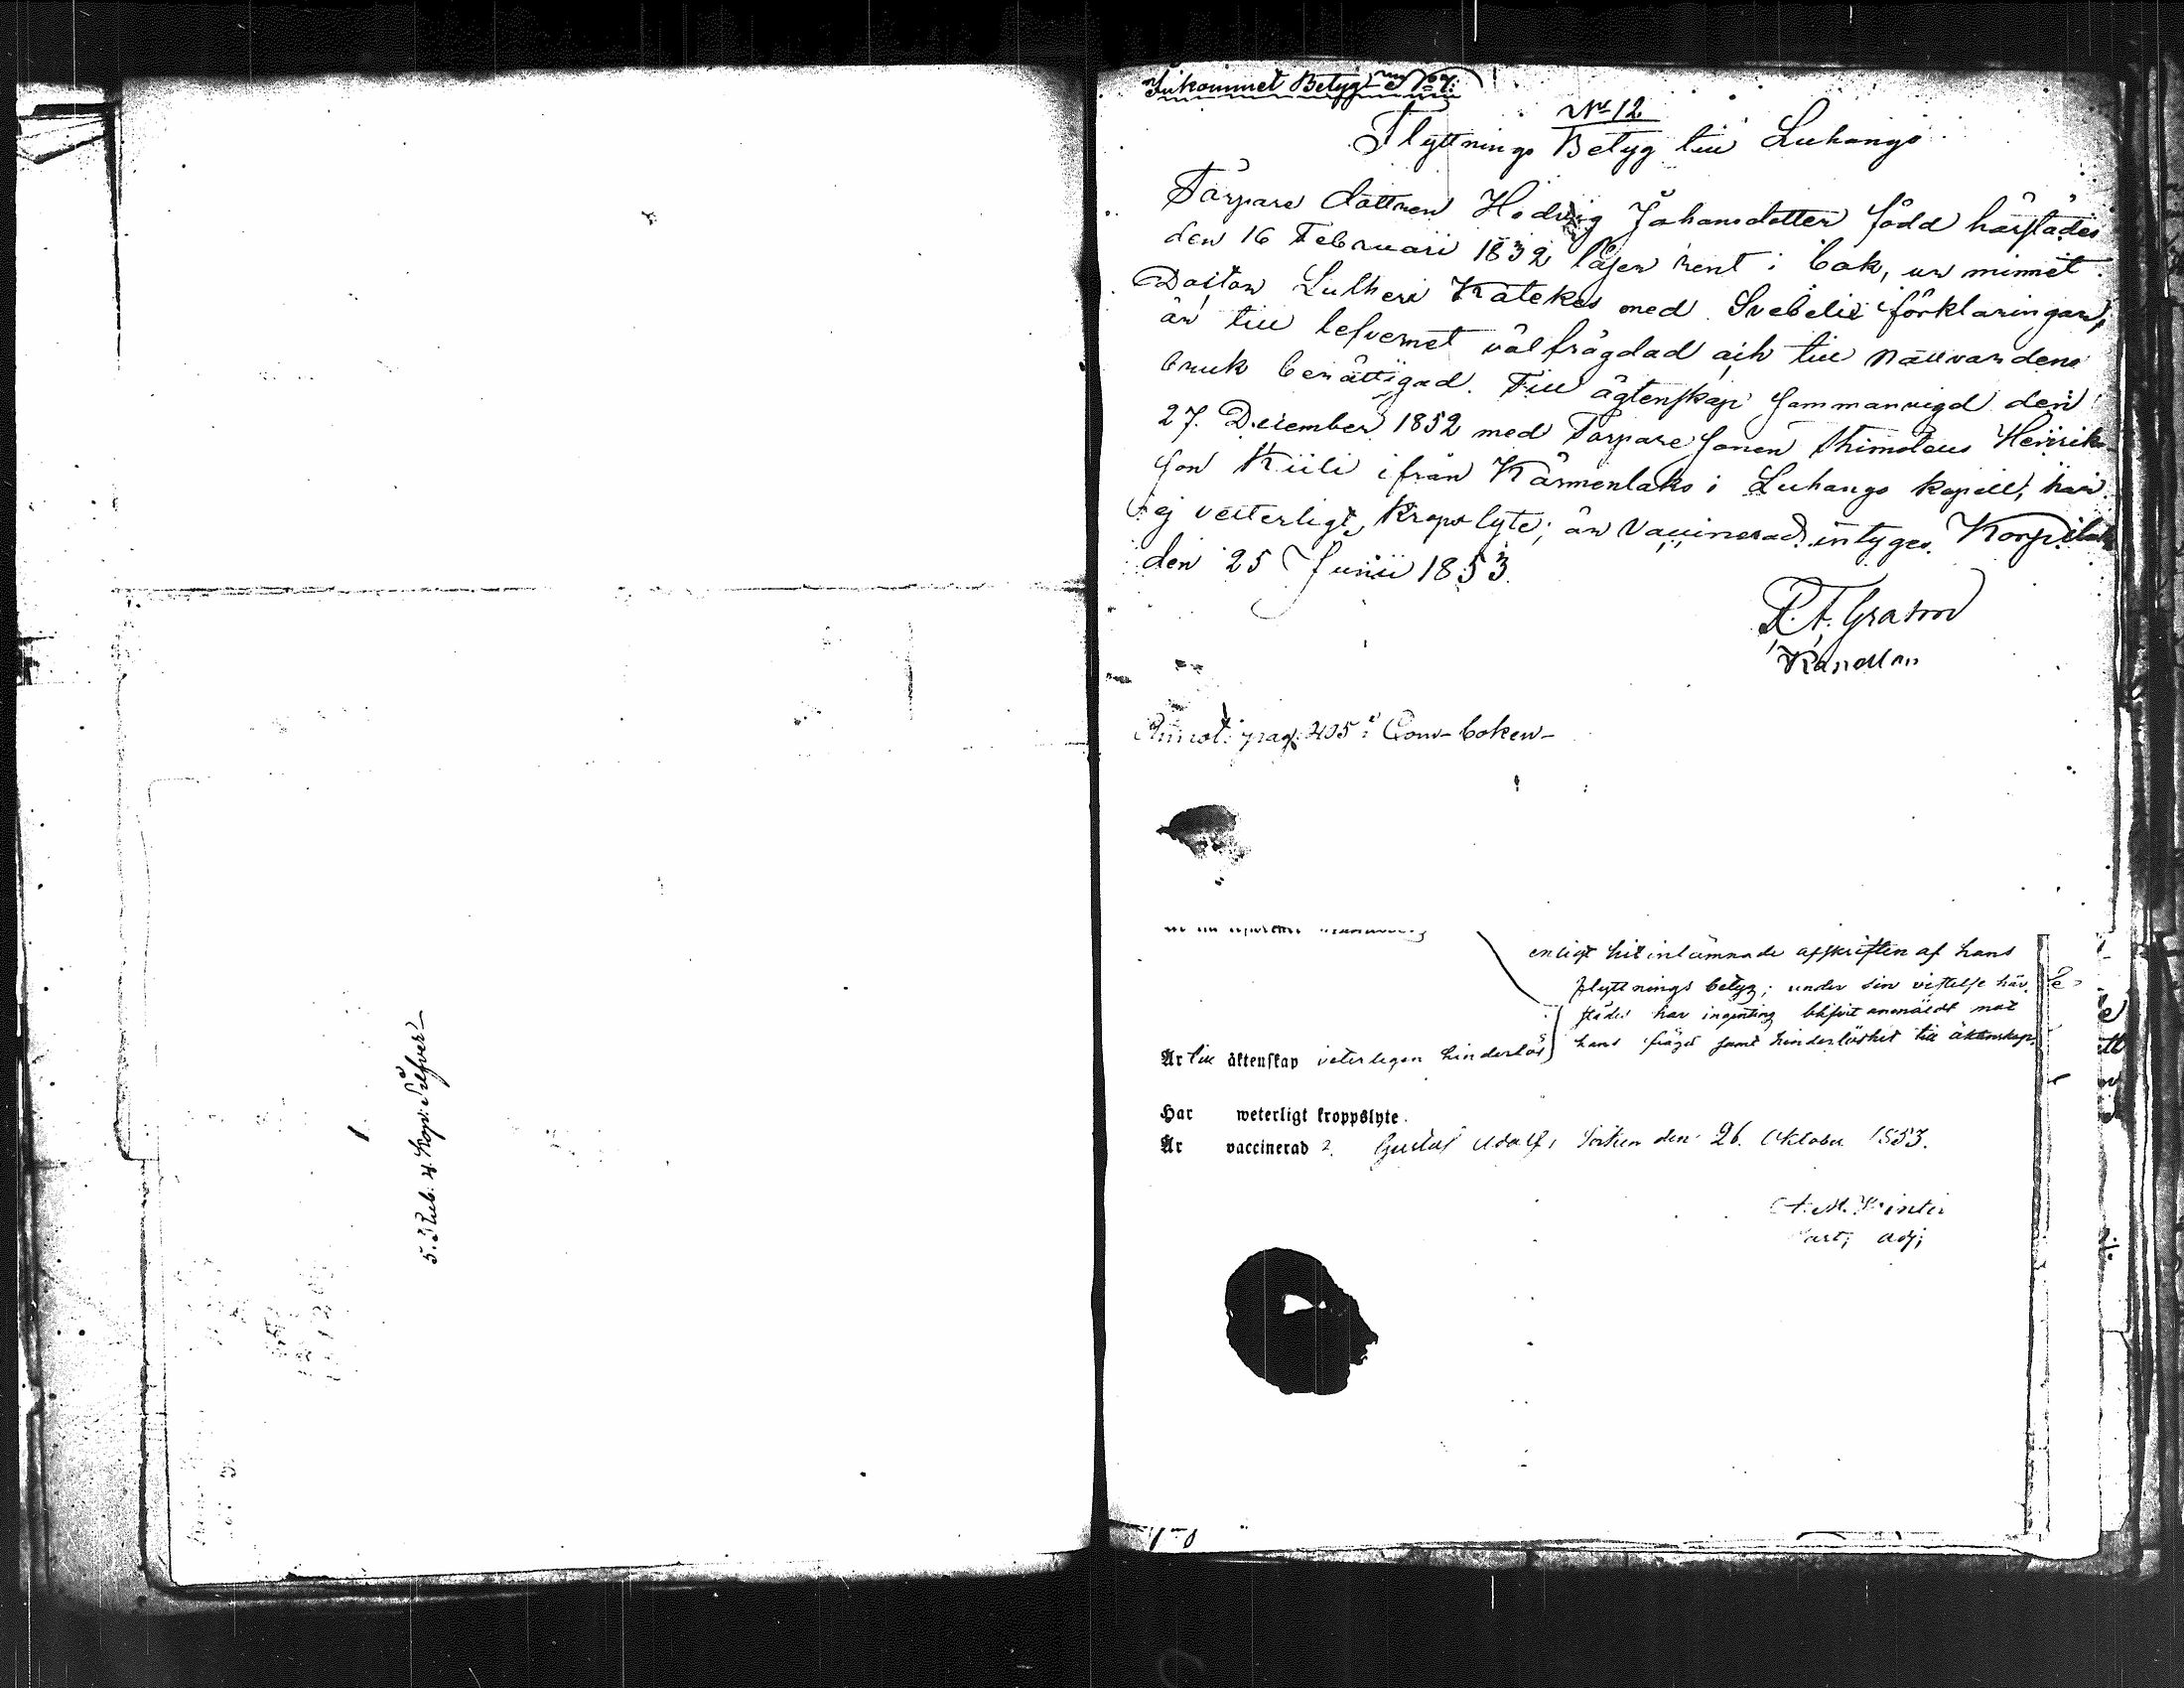 5. Rub. 4 Kop: Silfver
Inkommet Betyg
No 12
Flyttnings Betyg till Luhango
Tårpare dottren Hedvig Johansdotter född härstädes
den 16 Februari 1832 läser rent i bok, ur minnet
Doctor Lutheri Katekes med Svebelii förklaringar,
är till lefvernet välfrägdad och till Nattvardens
bruk berättigad. Till ägtenskap sammanvigd den
27. December 1852 med Tarpare sonen Thimoteus Henrik
son Kiili ifrån Kärmenlaks i Luhango kapell, har
ej vetterligt Kropslyte; är Vaccinerad intyges Korpilaks
den 25 Junii 1853.
Annot. pag: 405 i Com-boken
enligt hit inlämnade afskriften af hans
flyttnings betyg; under sin vistelse här
städes har ingenting blifvit anmäldt mot
hans frägd samt hinderlöshet till äktenskap.
Är till äktenskap veterligen hinderlös
Har weterligt kroppslyte.
Är vaccinerad Gustaf Adolfs Socken den 26. Oktober 1853.
Past; adj;